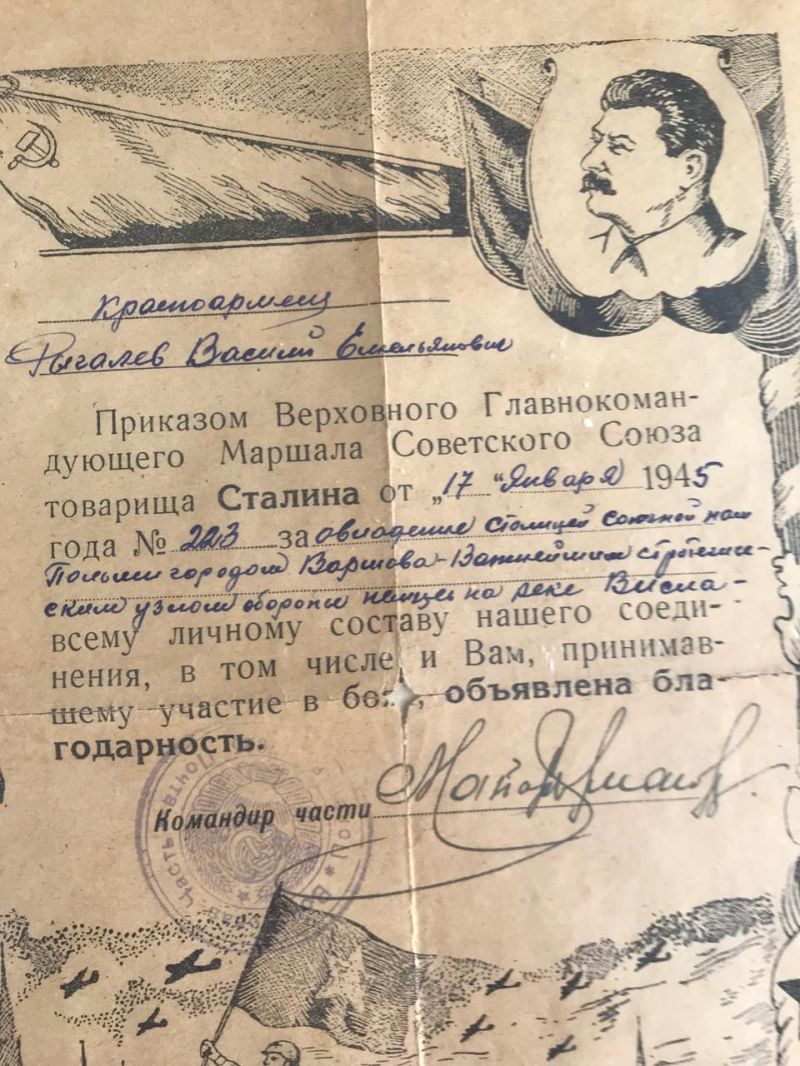 Красноармеец
Рыгалев Василий Емельянович
Приказом Верховного Главнокоман-
дующего Маршала Советского Союза
товарища Сталина от „17 “ Января 1945
года № 223 за овладение столицей союзной нам
Польши городом Варшова - Важнейшим стротегиче-
ским узлом обороны немцев на реке Висла -
всему личному составу нашего соеди-
нения, в том числе и Вам, принимав-
шему участие в боях, объявлена бла-
годарность.
Командир части